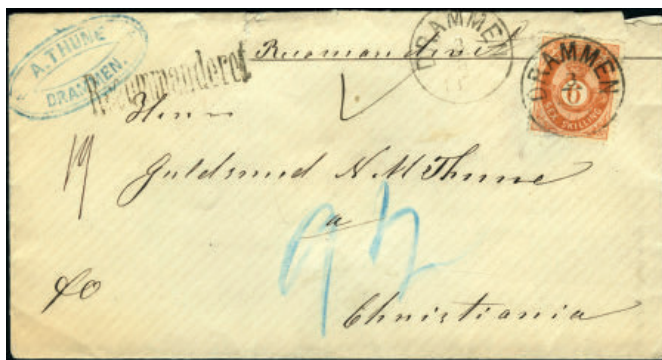 A. THUNE
DRAMMEN.
Recommanderet
DRAMMEN
DRAMMEN
6
SEX SKILLING
Herrn
Guldsmed N. M. Thune
a
Christiania